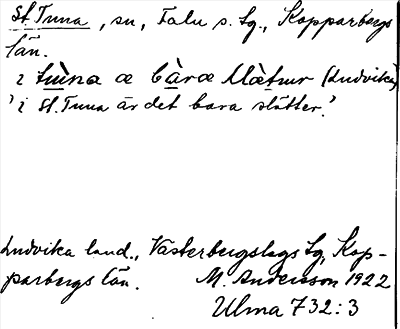 St. Tuna, sn, Falu s. tg., Kopparbergs
län.
i tùna æ bàra slætær (Ludvika)
'i St. Tuna är det bara slätter.'
Ludvika land., Västerbergslags tg, Kop-
parbergs län. M. Andersson 1922
Ulma 732:3